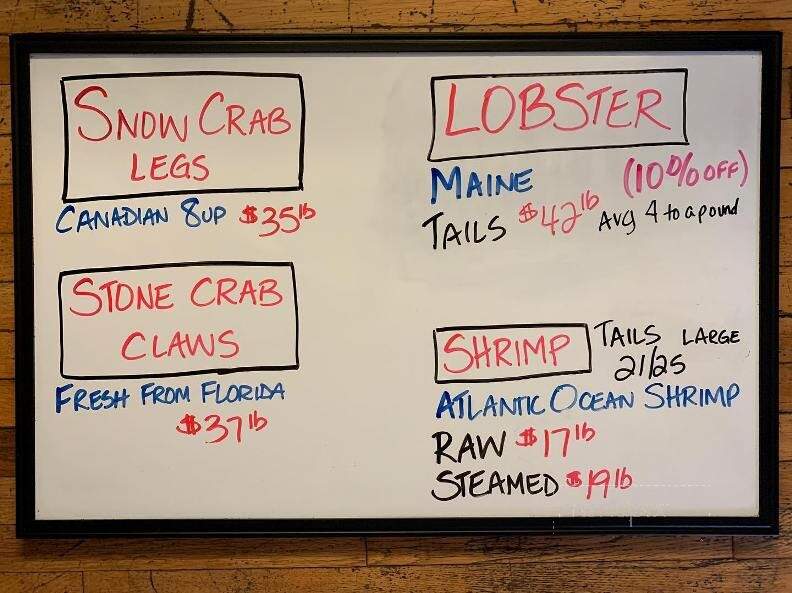 SNOW CRAB
LEGS
CANADIAN 8UP $35 lb
STONE CRAB
CLAWS
FRESH FROM FLORIDA
$37 lb
LOBSTER
MAINE (10% OFF)
TAILS $42 lb Avg 4 to a pound
SHRIMP TAILS LARGE
21/25
ATLANTIC OCEAN SHRIMP
RAW $17 lb
STEAMED $19 lb